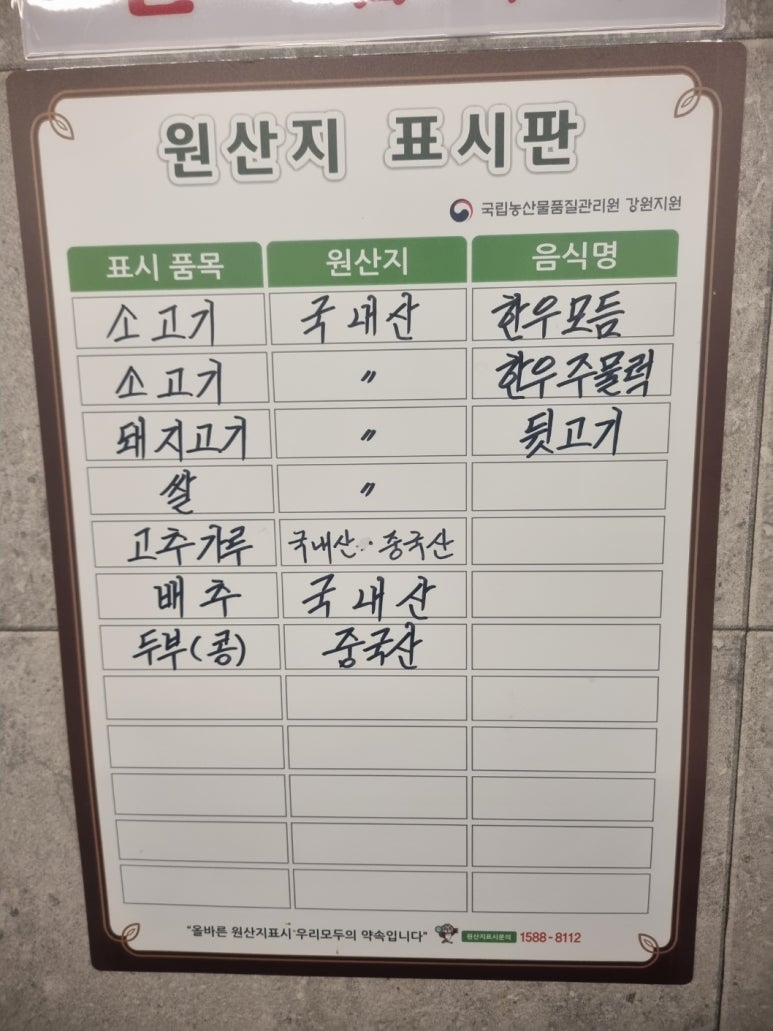 원산지 표시판
국립농산물품질관리원 강원지원
표시 품목 원산지 음식명
소고기 국내산 한우모듬
소고기 〃 한우주물럭
돼지고기 〃 뒷고기
쌀 〃
고추가루 국내산·중국산
배추 국내산
두부(콩) 중국산
"올바른 원산지표시 우리모두의 약속입니다" 원산지표시문의 1588-8112